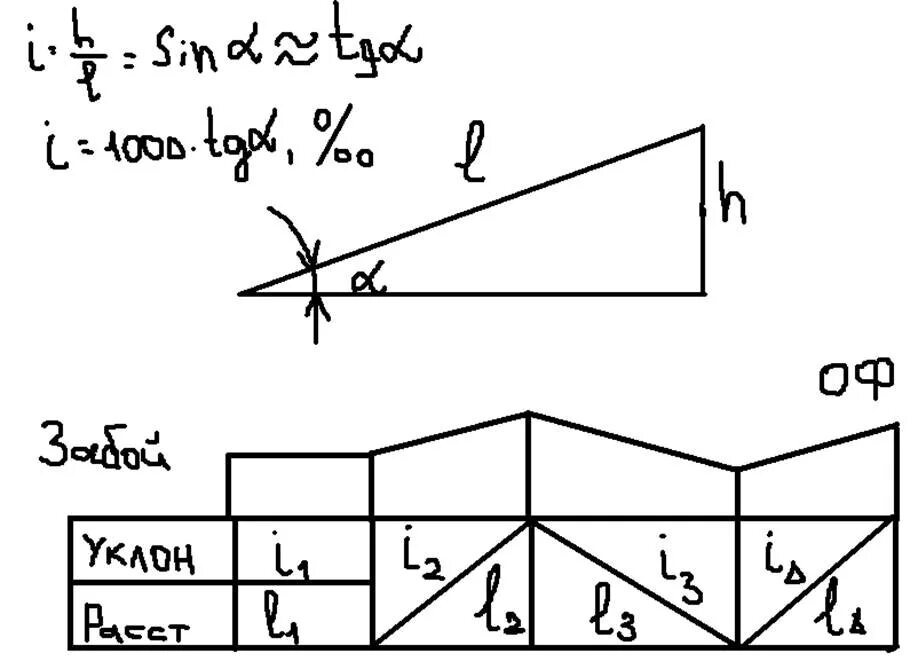 i = h/l = Sin α ≈ tgα
i = 1000·tgα, ‰
l
h
α
ОФ
Забой
Уклон i1 i2 i3 i4
Расст l1 l2 l3 l4